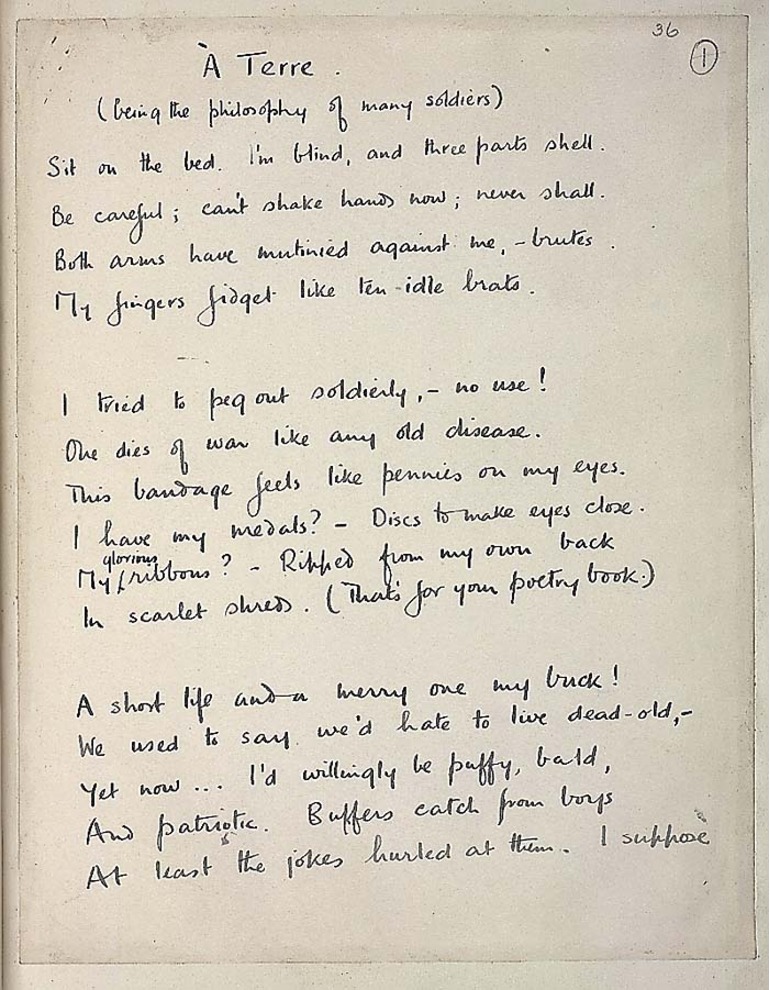 36
1
À Terre.
(being the philosophy of many soldiers)
Sit on the bed. I'm blind, and three parts shell.
Be careful; can't shake hands now; never shall.
Both arms have mutinied against me, - brutes.
My fingers fidget like ten idle brats.
I tried to peg out soldierly, - no use!
One dies of war like any old disease.
This bandage feels like pennies on my eyes.
I have my medals? - Discs to make eyes close.
glorious
My ribbons? - Ripped from my own back
In scarlet shreds. (That's for your poetry book.)
A short life and a merry one my buck!
We used to say we'd hate to live dead-old,-
Yet now ... I'd willingly be puffy, bald,
And patriotic. Buffers catch from boys
At least the jokes hurled at them. I suppose